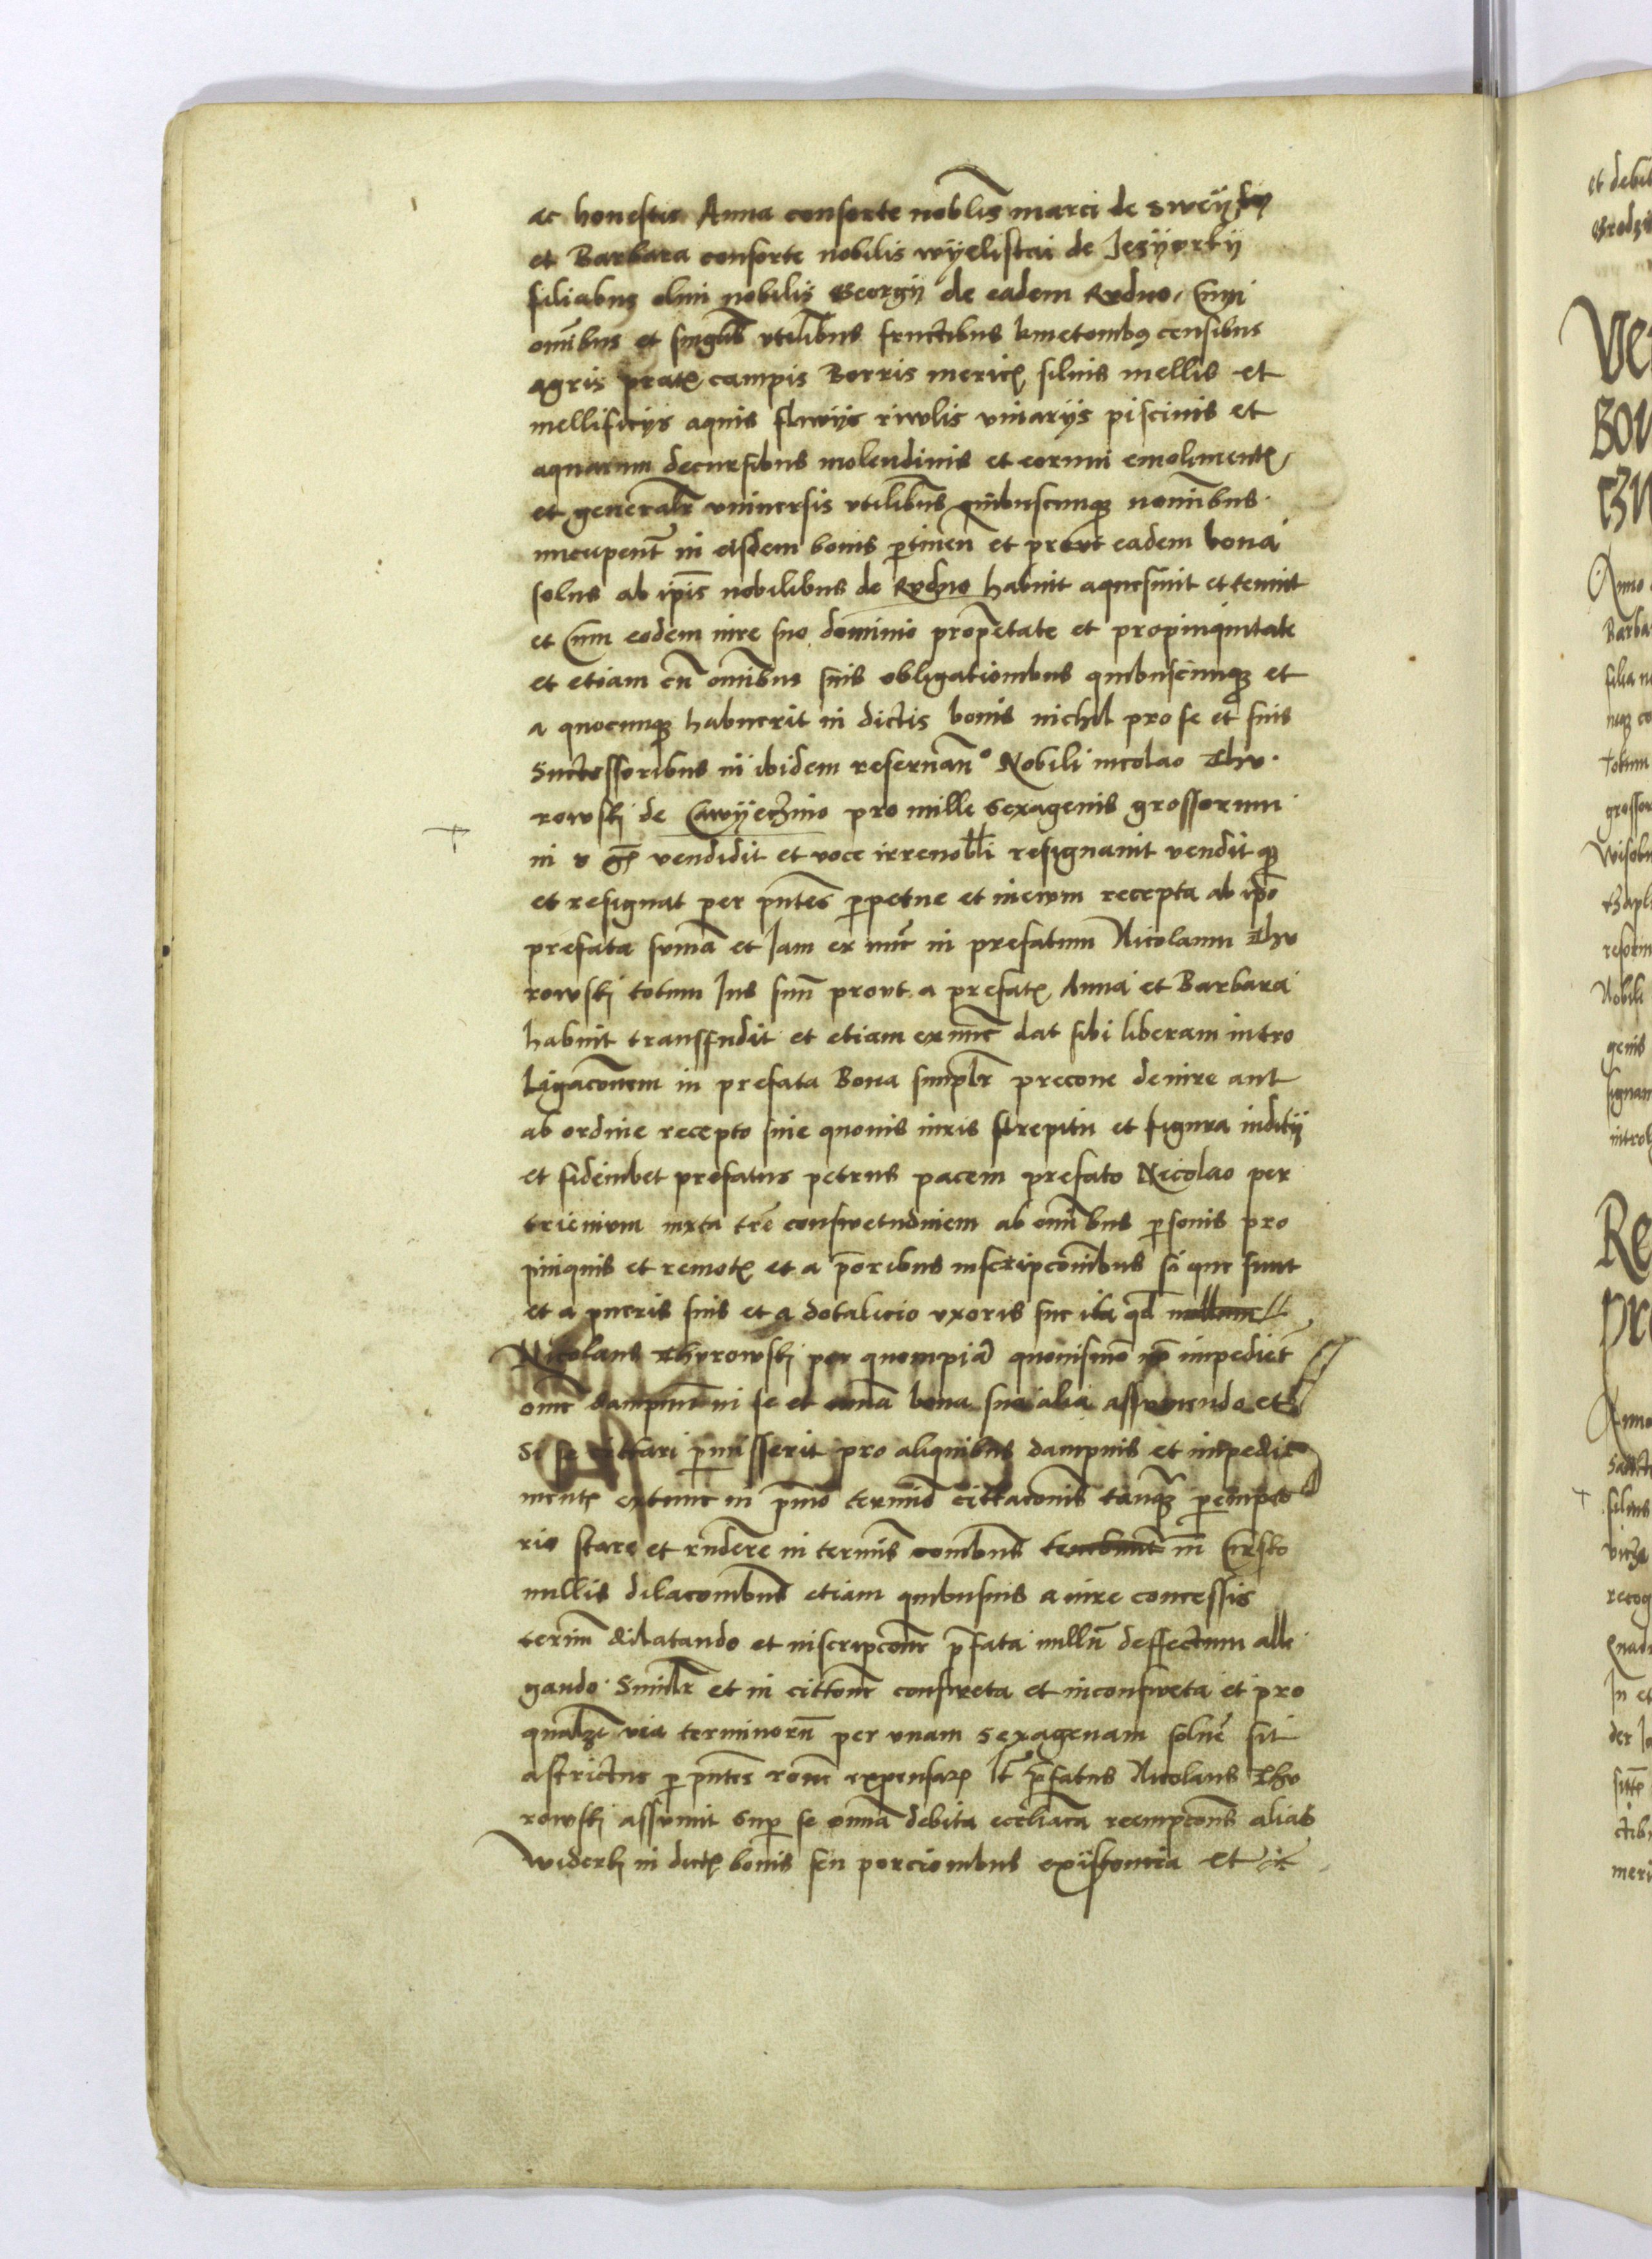 ac honestis Anna consorte nobilis marci de
et Barbara consorte nobilis wÿelistai de Jezÿorkÿ
filiabus olim nobilis Georgÿ de eadem Rudno, Cum
omibus et singulis utilibus fructibus kmetonibus censibus
agris pratis campis Borris mericis siluis mellis et
mellificÿs aquis fluuÿs riuulis viuarÿs piscinis et
aquarum decursibus molendinis et eorum emolimentis
et generalr vniuersis vtilibus quibuscunque nominibus
nucupent in eisdem bonis ptinen et prout eadem bona
solus ab ipis nobilibus de Rudno habuit aquesiuit et tenuit
et cum eodem iure suo dominio proprietate et propinquitate
et etiam cu omibus suis obligationibus quibuscunque et
a quocunque habuerit in dictis bonis nichil pro se et suis
Successoribus in ibidem reseruan Nobili nicolao Thu
rowski de pro mille sexagenis grossorum
in vendidit et voce irreuobli resignauit vendit que
et resignat per pntes ppetue et ineuum recepta ab ipo
prefata suma et Jam ex nuc in prefatum Nicolaum Thu
rowski totum Jus suu prout a prefatis Anna et Barbara
habuit transfudit et etiam exnunc dat sibi liberam intro
Ligaconem in prefata Bona simplr precone de iure aut
ab ordine recepto sine quouis iuris strepitu et figura iuditÿ
et fideiubet prefatus petrus pacem prefato Nicolao per
trienium iuxta tre consuetudinem ab omibus psonis pro
pinquis et remotis et a prioribus inscripconibus si que sunt
et a pueris suis et a dotalicio vxoris sue ita qd
Nicolaus Thurowski per quompia quouismo impediet
ome dampnum in se et omia bona sua alia assumendo et
Si se cittari pmisserit pro aliquibus dampnis et impedi
mentis extunc in pmo termio cittaconis tanq pempto
rio stare et rndere in terminis omibus in Cursto
nullis dilaconibus etiam quibusuis a iure concessis
terminu dilatando et inscripcone pfata nullu deffectum alle
gando. Similr et in cittone consweta et inconsweta et pro
qualzt via terminoru per vnam sexagenam soluere sit
astrictus p pntes rone expensarum It pfatus Nicolaus Thu
rowski assumit sup se omia debita eccliatica reempconis alias
widerk in dictis bonis seu porcionibus existencia et